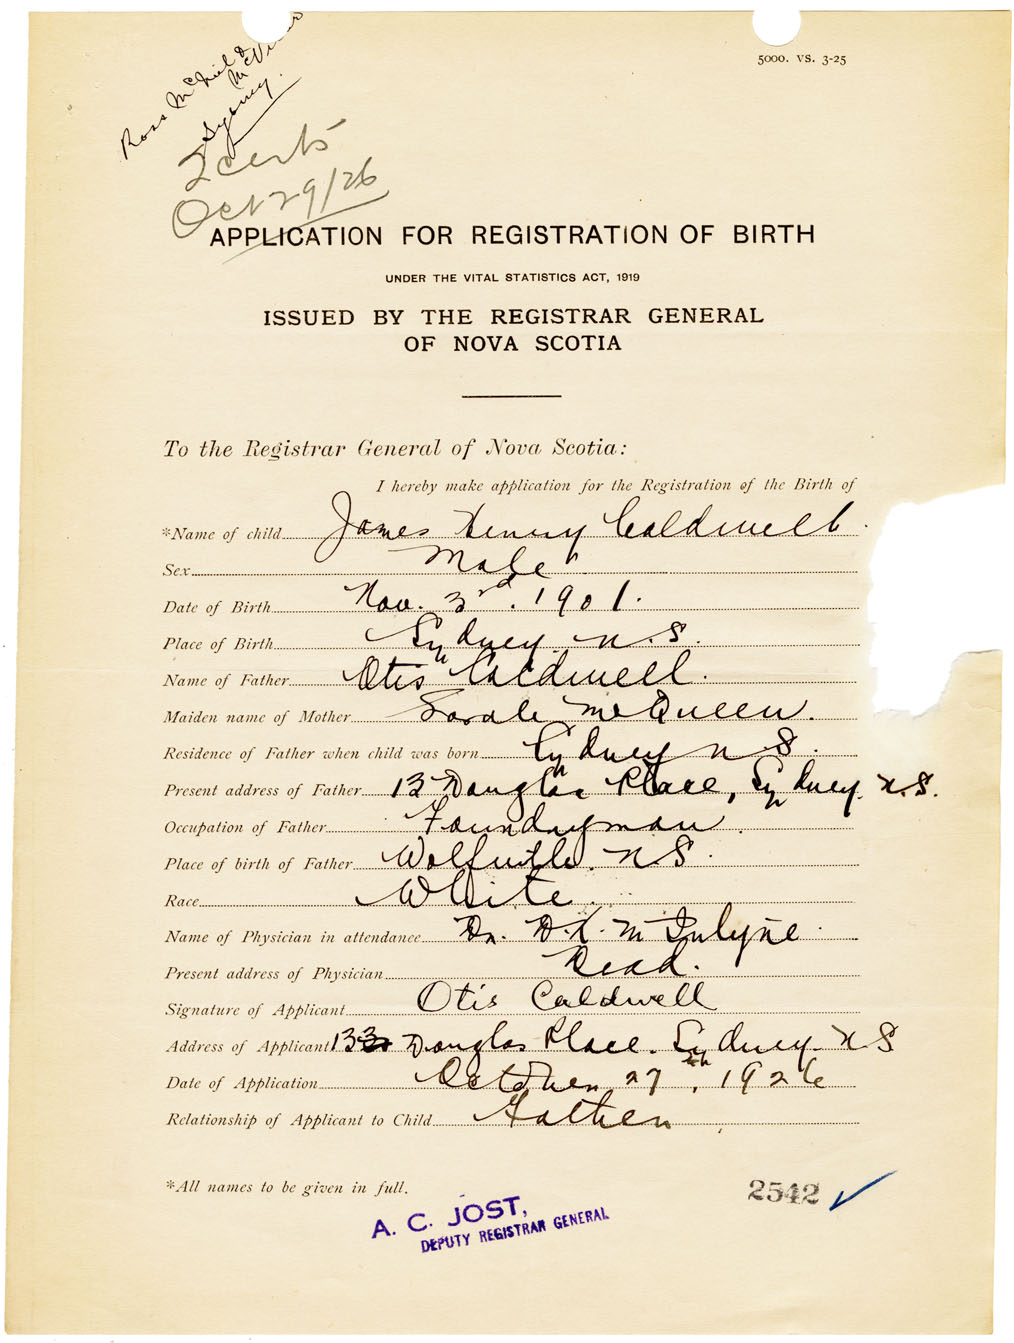 Ross McNeil &
Sydney.
5000. VS. 3-25
2 certs
Oct 29/26
APPLICATION FOR REGISTRATION OF BIRTH
UNDER THE VITAL STATISTICS ACT, 1919
ISSUED BY THE REGISTRAR GENERAL
OF NOVA SCOTIA
To the Registrar General of Nova Scotia:
I hereby make application for the Registration of the Birth of
*Name of child James Henry Caldwell.
Sex Male
Date of Birth Nov. 3rd. 1901.
Place of Birth Sydney N.S.
Name of Father Otis Caldwell.
Maiden name of Mother Sarah McQueen.
Residence of Father when child was born Sydney N S.
Present address of Father 13 Douglas Place, Sydney. N.S.
Occupation of Father Foundryman.
Place of birth of Father Wolfville. N S.
Race White.
Name of Physician in attendance Dr. D. K.
Present address of Physician Dead.
Signature of Applicant Otis Caldwell
Address of Applicant 13 Douglas Place. Sydney. N S
Date of Application October 27th, 1926
Relationship of Applicant to Child Father
*All names to be given in full.
2542
A. C. JOST,
DEPUTY REGISTRAR GENERAL